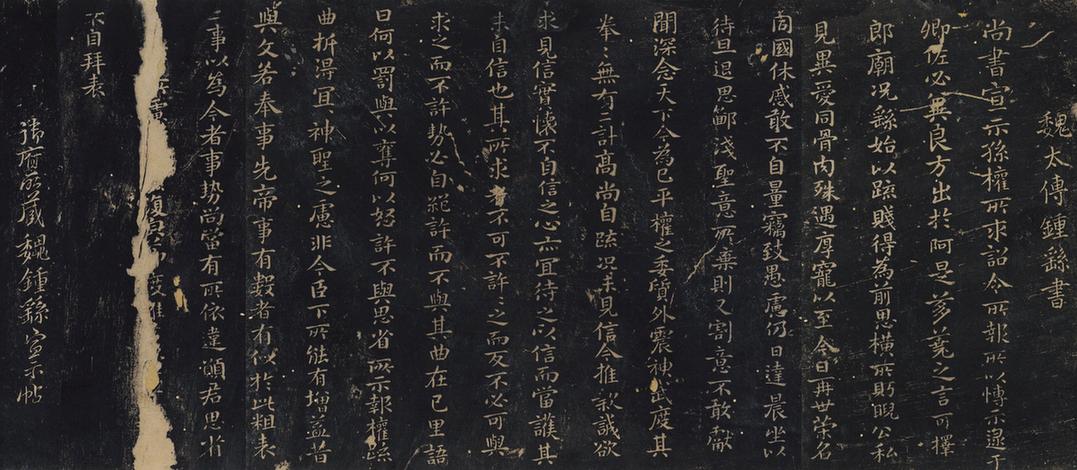 魏太傅鍾繇書
尚書宣示孫權所求詔令所報所以博示逮于
卿佐必冀良方出於阿是芻蕘之言可擇
郎廟況繇始以疏賤得為前恩橫所盻睨公私
見異愛同骨肉殊遇厚寵以至今日再世榮名
同國休慼敢不自量竊致愚慮仍日達晨坐以
待旦退思鄙淺聖意所棄則又割意不敢獻
聞深念天下今為已平權之委質外震神武度其
拳〻無有二計高尚自疏況未見信今推款誠欲
求見信實懷不自信之心亦宜待之以信而當護其
未自信也其所求者不可不許〻之而反不必可與
求之而不許勢必自絕許而不與其曲在己里語
曰何以罰與以奪何以怒許不與思省所示報權疏
曲折得宜神聖之慮非今臣下所能有增益昔
與文若奉事先帝事有數者有似於此粗表
二事以為今者事勢尚當有所依違願君思省
復
不自拜表
褚府所藏魏鍾繇宣示帖